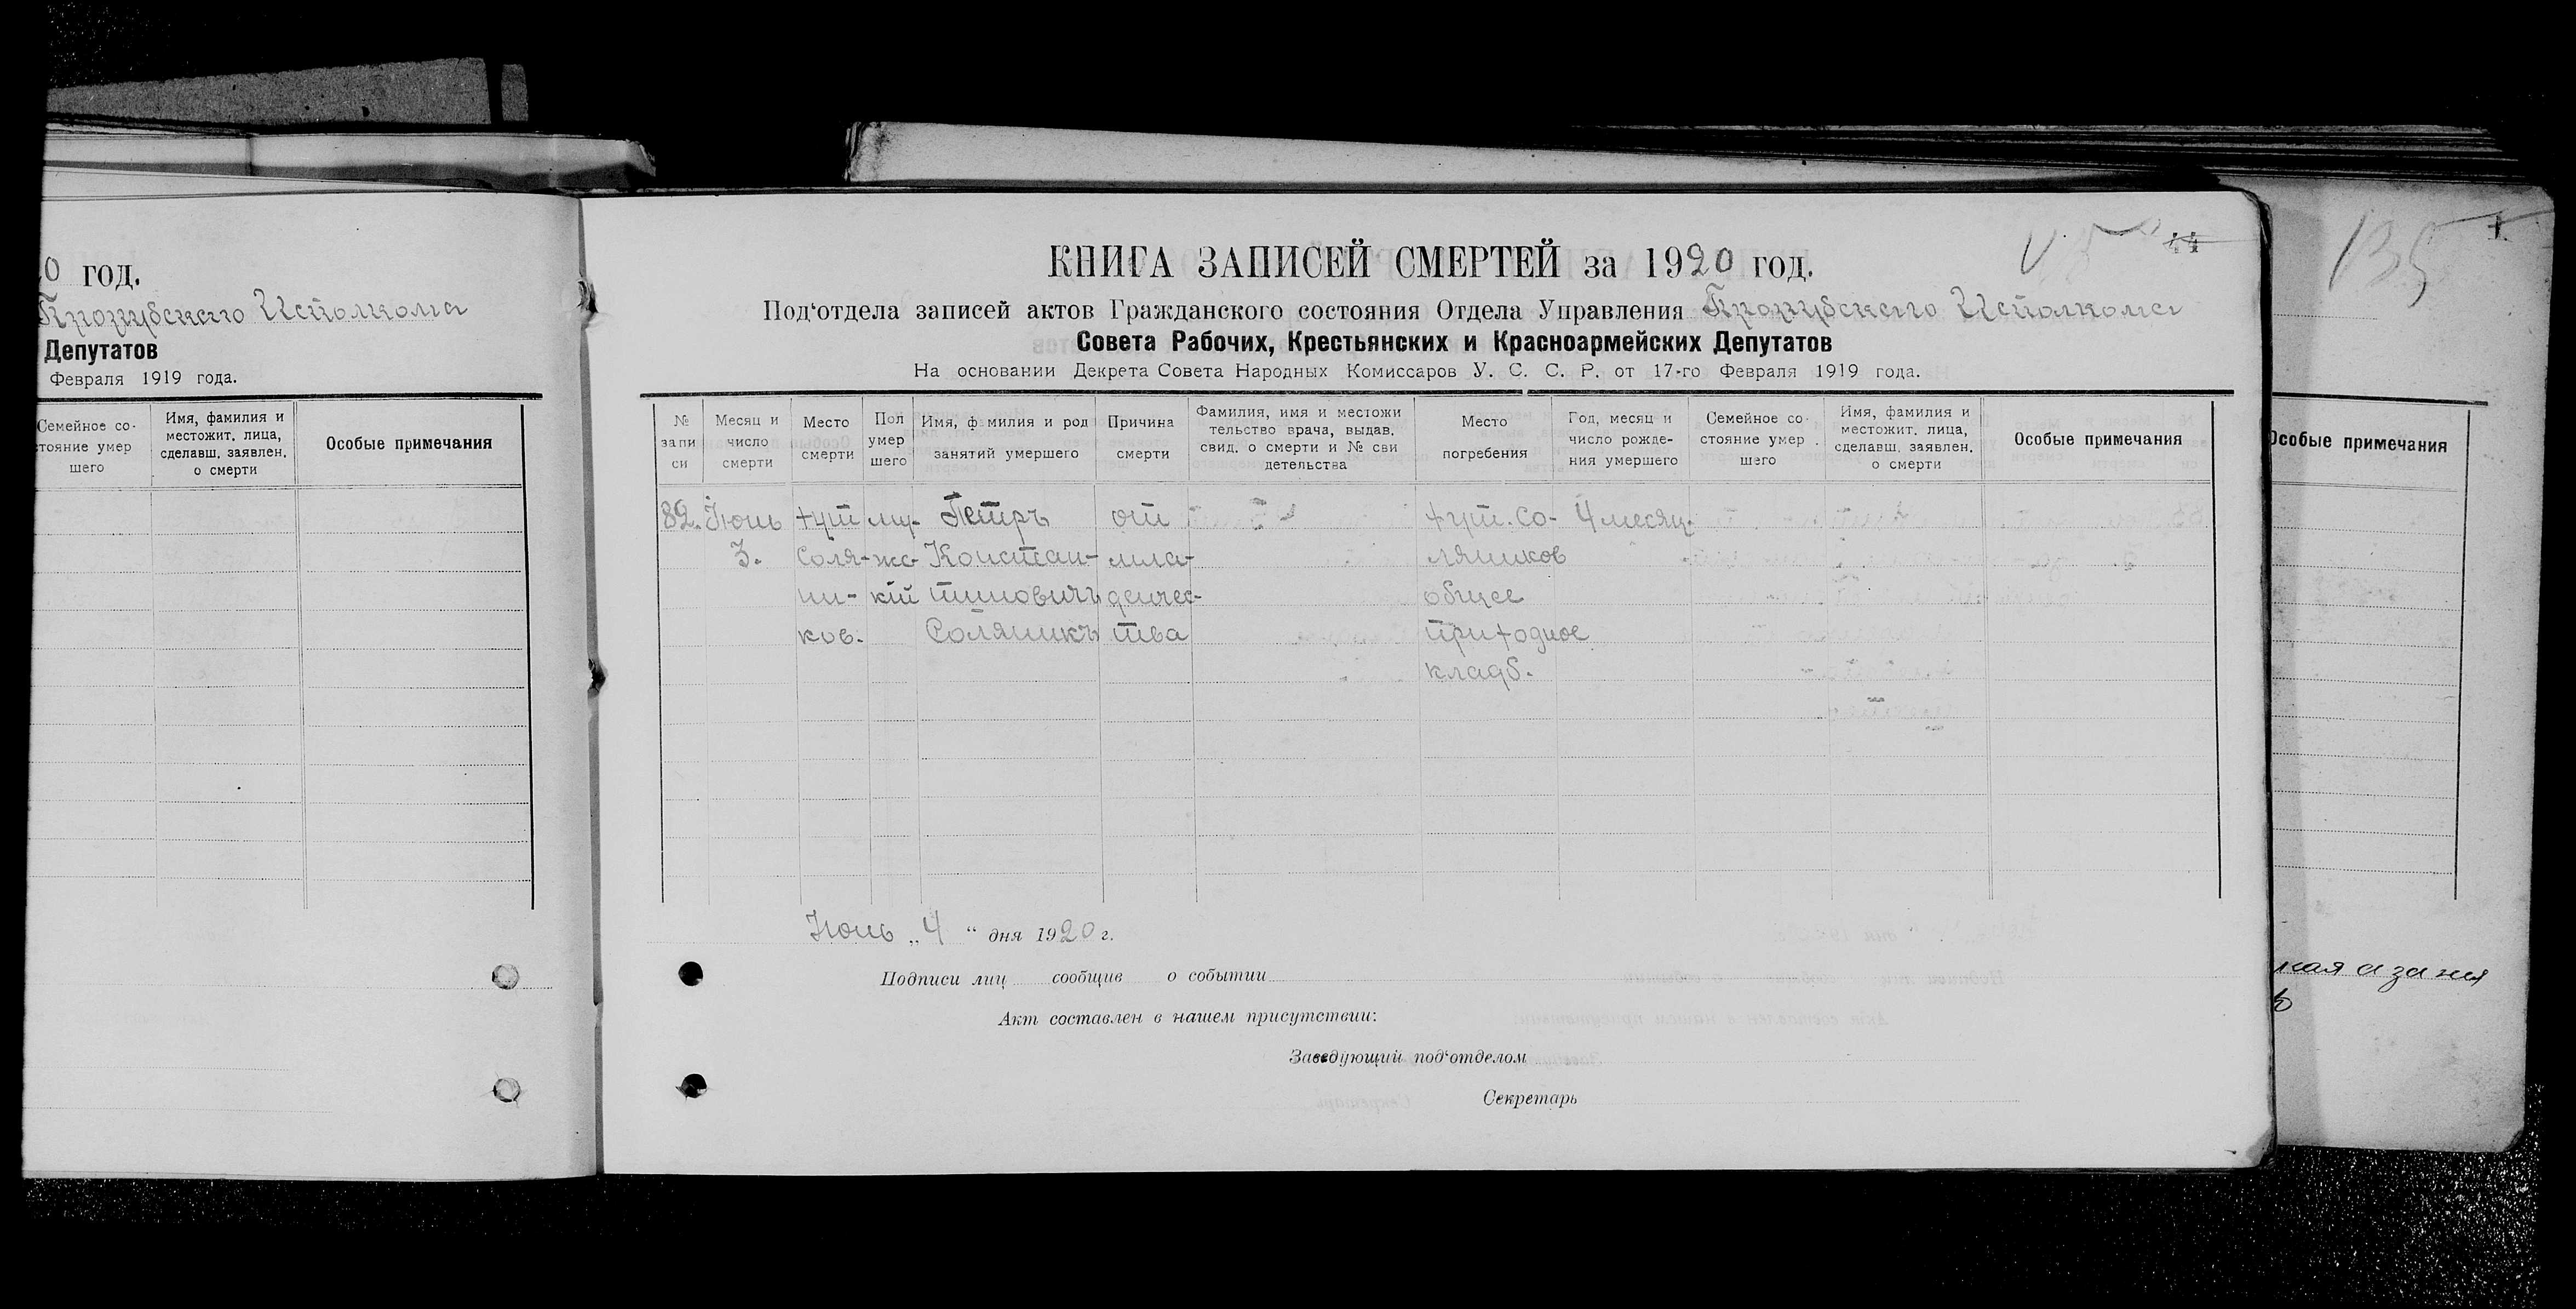 0 год.
Кролубскаго Исполкома
Депутатов
Февраля 1919 года.
Семейное со-
стояние умер
шего
Имя, фамилия и
местожит. лица,
сделавш. заявлен.
о смерти
Особые примечания
КНИГА ЗАПИСЕЙ СМЕРТЕЙ за 1920 год.
Под‘отдела записей актов Гражданского состояния Отдела Управления Исполкома
Совета Рабочих, Крестьянских и Красноармейских Депутатов
На основании Декрета Совета Народных Комиссаров У. С. С. Р. от 17-го Февраля 1919 года.
№
запи
си
Месяц и
число
смерти
Место
смерти
Пол
умер
шего
Имя, фамилия и род
занятий умершего
Причина
смерти
Фамилия, имя и местожи
тельство врача, выдав.
свид. о смерти и № сви
детельства
Место
погребения
Год, месяц и
число рожде-
ния умершего
Семейное со-
стояние умер
шего
Имя, фамилия и
местожит. лица,
сделавш. заявлен.
о смерти
Особые примечания
82.
Июнь
3.
хут
Соля-
ни-
ков.
му-
жс-
кій
Петръ
Констан-
тиновичъ
Соляникъ
от
мла-
денчес-
тва
хут. Со-
ляников
общее
приходное
кладб.
4 месяц.
Июнь „ 4 “ дня 1920 г.
Подписи лиц сообщив о событии
Акт составлен в нашем присутствии:
Заведующий под‘отделом
Секретарь
135
Особые примечания